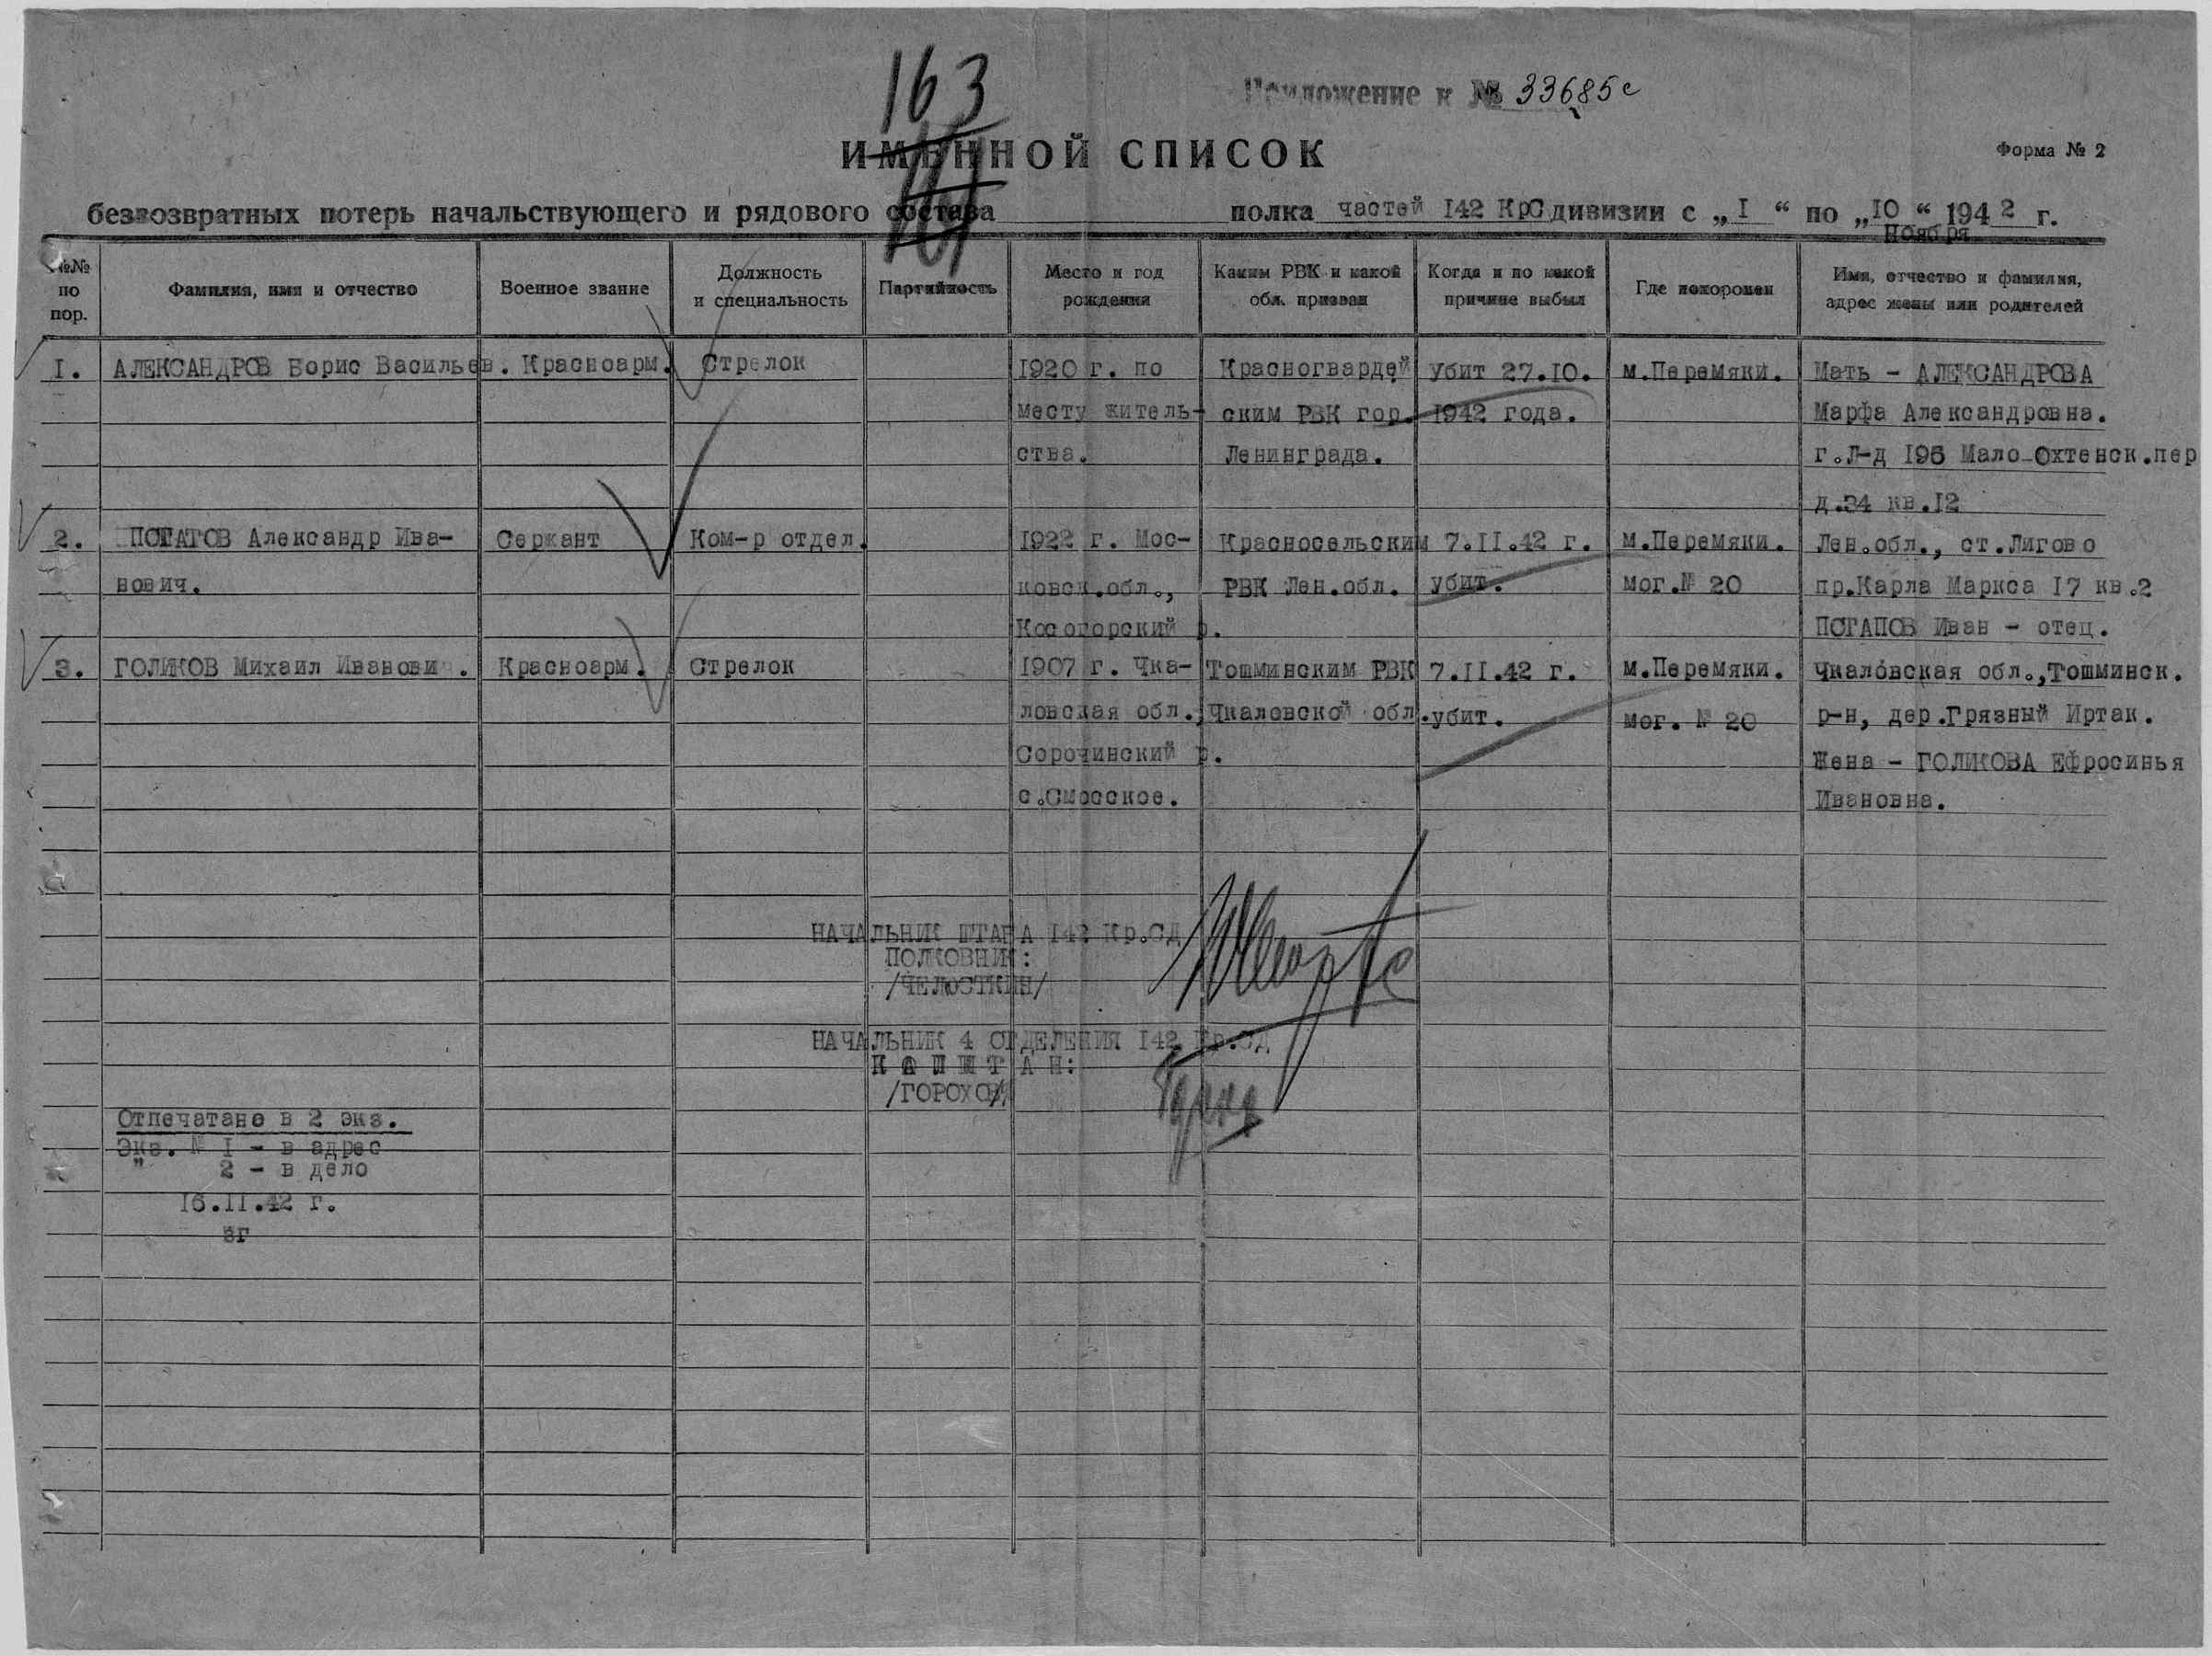 163
Приложение к № 33685с
ИМЕННОЙ СПИСОК
Форма № 2
безвозвратных потерь начальствующего и рядового состава полка частей 142 КрС дивизии с „ I “ по „ IO “ 1942 г.
Ноября
№№ по пор.
Фамилия, имя и отчество
Военное звание
Должность и специальность
Партийность
Место и год рождения
Каким РВК и какой обл. призван
Когда и по какой причине выбыл
Где похоронен
Имя, отчество и фамилия, адрес жены или родителей
I. АЛЕКСАНДРОВ Борис Васильев. Красноарм. Стрелок 1920 г. по Красногвардей убит 27.IO. м.Перемяки. Мать - АЛЕКСАНДРОВА
месту житель- ским РВК гор. 1942 года. Марфа Александровна.
ства. Ленинграда. г.Л-д 196 Мало-Охтенск.пер
д.34 кв.I2
2. ПОТАТОВ Александр Ива- Сержант Ком-р отдел. 1922 г. Мос- Красносельским 7.II.42 г. м.Перемяки. Лен.обл., ст.Лигово
нович. ковск.обл., РВК Лен.обл. убит. мог.№ 20 пр.Карла Маркса I7 кв.2
Косогорский р. ПОТАПОВ Иван - отец.
3. ГОЛИКОВ Михаил Иванович. Красноарм. Стрелок 1907 г. Чка- Тошминским РВК 7.II.42 г. м.Перемяки. Чкаловская обл.,Тошминск.
ловская обл., Чкаловской обл. убит. мог. № 20 р-н, дер.Грязный Иртак.
Сорочинский р. Жена - ГОЛИКОВА Ефросинья
с.Смосское. Ивановна.
НАЧАЛЬНИК ШТАБА I42 Кр.СД
ПОЛКОВНИК:
/ЧЕЛОСТКИН/
НАЧАЛЬНИК 4 ОТДЕЛЕНИЯ I42 Кр.СД
К А П И Т А Н:
/ГОРОХОВ/
Отпечатано в 2 экз.
Экз. № I - в адрес
" 2 - в дело
I6.II.42 г.
вг